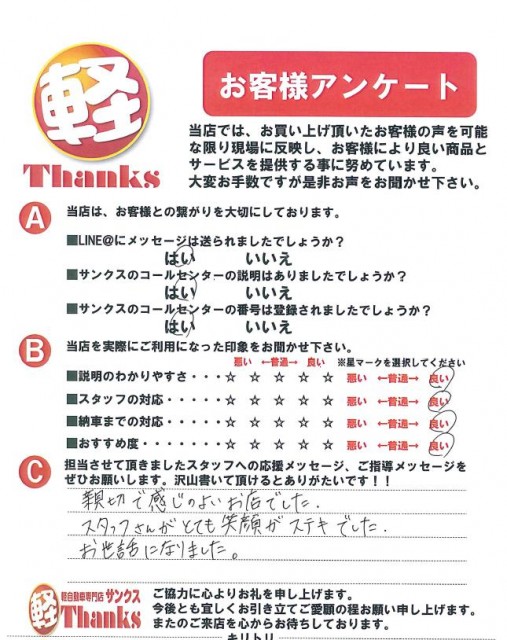 軽
Thanks
お客様アンケート
当店では、お買い上げ頂いたお客様の声を可能
な限り現場に反映し、お客様により良い商品と
サービスを提供する事に努めています。
大変お手数ですが是非お声をお聞かせ下さい。
A 当店は、お客様との繋がりを大切にしております。
■LINE@にメッセージは送られましたでしょうか?
はい いいえ
■サンクスのコールセンターの説明はありましたでしょうか?
はい いいえ
■サンクスのコールセンターの番号は登録されましたでしょうか?
はい いいえ
B 当店を実際にご利用になった印象をお聞かせ下さい。
悪い ←普通→ 良い ※星マークを選択してください
■説明のわかりやすさ・・・・☆ ☆ ☆ ☆ ☆ 悪い ←普通→ 良い
■スタッフの対応・・・・・・☆ ☆ ☆ ☆ ☆ 悪い ←普通→ 良い
■納車までの対応・・・・・・☆ ☆ ☆ ☆ ☆ 悪い ←普通→ 良い
■おすすめ度・・・・・・・・☆ ☆ ☆ ☆ ☆ 悪い ←普通→ 良い
C 担当させて頂きましたスタッフへの応援メッセージ、ご指導メッセージを
ぜひお願いします。沢山書いて頂けるとありがたいです!!
親切で感じのよいお店でした.
スタッフさんがとても笑顔がステキでした.
お世話になりました。
軽 軽自動車専門店 サンクス
Thanks
ご協力に心よりお礼を申し上げます。
今後とも宜しくお引き立てご愛顧の程お願い申し上げます。
またのご来店を心からお待ちしております。
キリトリ